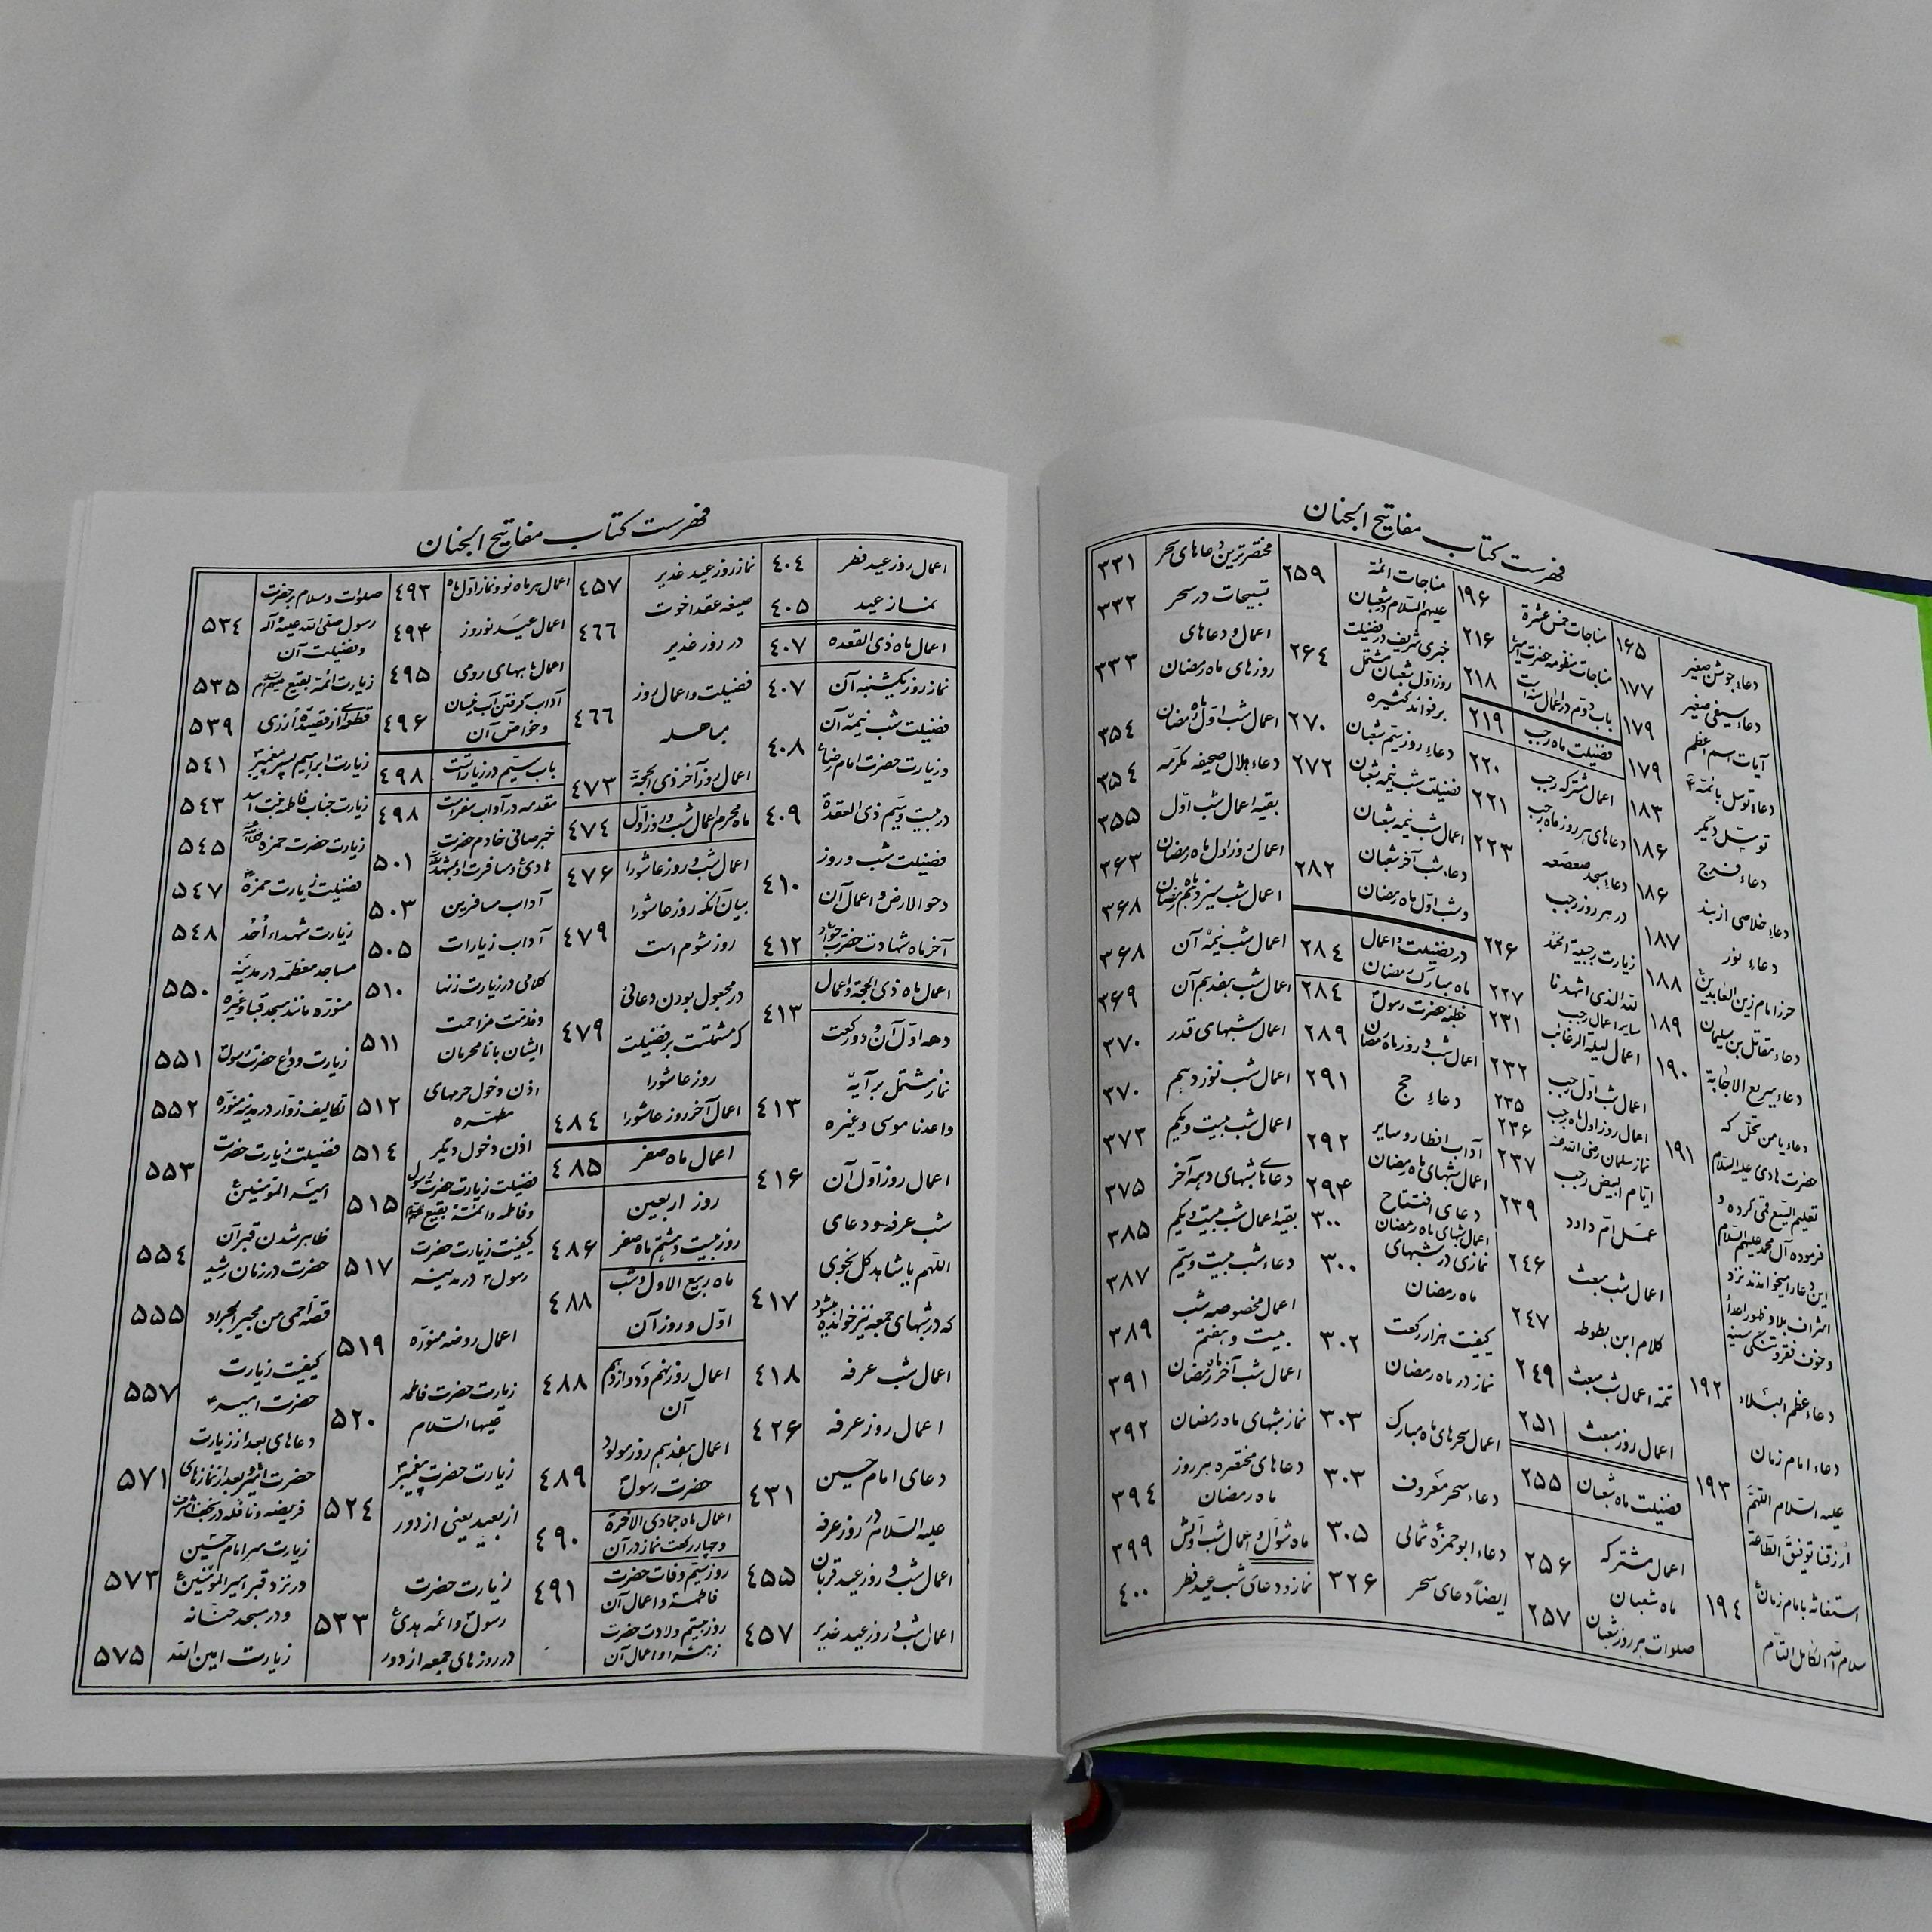 فهرست کتاب مفاتیح الجنان
دعاء جوشن صغیر ۱۶۵
دعاء سیفی صغیر ۱۷۷
آیات اسم اعظم ۱۷۹
دعاء توسل بائمة ۱۷۹
توسل دیگر ۱۸۳
دعاء فرج ۱۸۶
دعاء خلاصی از بند ۱۸۶
دعاء نور ۱۸۷
حرز امام زین العابدین ۱۸۸
دعاء مقاتل بن سلیمان ۱۸۹
دعاء سریع الاجابة ۱۹۰
دعاء یا من تحل که
حضرت هادی علیه السلام ۱۹۱
تعلیم الیسع قمی کرده و
فرموده آل محمد علیهم السلام
این دعا را میخوانند نزد
اشراف بلاء و ظهور اعداء
و خوف فقر و تنگی سینه
دعاء عظم البلاء ۱۹۲
دعاء امام زمان
علیه السلام اللهم ۱۹۳
ارزقنا توفیق الطاعة
استغاثه بامام زمان ۱۹٤
سلام الله الکامل التام
مناجات خمس عشرة ۱۹۶
مناجات منظومه حضرت امیر ۲۱۶
باب دوم در اعمال سنه است ۲۱۸
فضیلت ماه رجب ۲۱۹
اعمال مشترکه رجب ۲۲۰
دعاهای هر روز ماه رجب ۲۲۱
دعاء مسجد صعصعه ۲۲۳
در هر روز رجب
زیارت رجبیة الحمد ۲۲۶
لله الذی اشهدنا
سایر اعمال رجب ۲۲۷
اعمال لیلة الرغائب ۲۳۱
اعمال شب اول رجب ۲۳۲
اعمال روز اول ماه رجب ۲۳۵
نماز سلمان رضی الله عنه ۲۳۶
ایام البیض رجب ۲۳۷
عمل ام داود ۲۳۹
اعمال شب مبعث ۲٤۶
کلام ابن بطوطه ۲٤۷
تتمه اعمال شب مبعث ۲٤۹
اعمال روز مبعث ۲۵۱
فضیلت ماه شعبان ۲۵۵
اعمال مشترکه ۲۵۶
ماه شعبان
صلوات هر روز شعبان ۲۵۷
مناجات ائمة ۲۵۹
علیهم السلام در شعبان
خبری شریف در فضیلت ۲۶٤
روز اول شعبان مشتمل
بر فوائد کثیره
دعاء روز سیم شعبان ۲۷۰
فضیلت شب نیمه شعبان ۲۷۲
اعمال شب نیمه شعبان
دعاء شب آخر شعبان ۲۸۲
و شب اول ماه رمضان
در فضیلت و اعمال ۲۸٤
ماه مبارک رمضان
خطبه حضرت رسول ۲۸٤
اعمال شب و روز ماه رمضان ۲۸۹
دعاء حج ۲۹۱
آداب افطار و سایر ۲۹۲
اعمال شبهای ماه رمضان
دعای افتتاح ۲۹۴
اعمال شبهای ماه رمضان ۳۰۰
نمازی در شبهای ۳۰۰
ماه رمضان
کیفیت هزار رکعت ۳۰۲
نماز در ماه رمضان
اعمال سحرهای ماه مبارک ۳۰۳
دعاء سحر معروف ۳۰۳
دعاء ابو حمزه ثمالی ۳۰۵
ایضاً دعای سحر ۳۲۶
مختصرترین دعاهای سحر ۳۳۱
تسبیحات در سحر ۳۳۲
اعمال و دعاهای ۳۳۳
روزهای ماه رمضان
اعمال شب اول ماه رمضان ۳۵٤
دعاء هلال صحیفه مکرمه ۳۵٤
بقیه اعمال شب اول ۳۵۵
اعمال روز اول ماه رمضان ۳۶۳
اعمال شب سیزدهم ماه رمضان ۳۶۸
اعمال شب نیمه آن ۳۶۸
اعمال شب هفدهم آن ۳۶۹
اعمال شبهای قدر ۳۷۰
اعمال شب نوزدهم ۳۷۰
اعمال شب بیست و یکم ۳۷۳
دعاهای شبهای دهه آخر ۳۷۵
بقیه اعمال شب بیست و یکم ۳۸۵
دعاء شب بیست و سیم ۳۸۷
اعمال مخصوصه شب ۳۸۹
بیست و هفتم
اعمال شب آخر ماه رمضان ۳۹۱
نماز شبهای ماه رمضان ۳۹۲
دعاهای مختصره هر روز ۳۹٤
ماه رمضان
ماه شوال و اعمال شب اولش ۳۹۹
نماز و دعای شب عید فطر ٤۰۰
فهرست کتاب مفاتیح الجنان
اعمال روز عید فطر ٤۰٤
نماز عید ٤۰۵
اعمال ماه ذی القعده ٤۰۷
نماز روز یکشنبه آن ٤۰۷
فضیلت شب نیمه آن ٤۰۸
و زیارت حضرت امام رضا
در بیست و سیم ذی القعدة ٤۰۹
فضیلت شب و روز ٤۱۰
دحو الارض و اعمال آن
آخر ماه شهادت حضرت جواد ٤۱۲
اعمال ماه ذی الحجة و اعمال ٤۱۳
دهه اول آن و دو رکعت
نماز مشتمل بر آیه ٤۱۳
واعدنا موسی و غیره
اعمال روز اول آن ٤۱۶
شب عرفه و دعای
اللهم یا شاهد کل نجوی ٤۱۷
که در شبهای جمعه نیز خوانده میشود
اعمال شب عرفه ٤۱۸
اعمال روز عرفه ٤۲۶
دعای امام حسین ٤۳۱
علیه السلام در روز عرفه
اعمال شب و روز عید قربان ٤۵۵
اعمال شب و روز عید غدیر ٤۵۷
نماز روز عید غدیر ٤۵۷
صیغه عقد اخوت ٤۶۶
در روز غدیر
فضیلت و اعمال روز ٤۶۶
مباهله
اعمال روز آخر ذی الحجة ٤۷۳
ماه محرم اعمال شب و روز اول ٤۷٤
اعمال شب و روز عاشورا ٤۷۶
بیان آنکه روز عاشورا ٤۷۹
روز شوم است
در مجعول بودن دعائی ٤۷۹
که مشتملست بر فضیلت
روز عاشورا
اعمال آخر روز عاشورا ٤۸٤
اعمال ماه صفر ٤۸۵
روز اربعین
روز بیست و هشتم ماه صفر ٤۸۶
ماه ربیع الاول و شب ٤۸۸
اول و روز آن
اعمال روز نهم و دوازدهم ٤۸۸
آن
اعمال هفدهم روز مولود ٤۸۹
حضرت رسول
اعمال ماه جمادی الآخرة ٤۹۰
و چهار رکعت نماز در آن
روز سیم وفات حضرت ٤۹۱
فاطمة و اعمال آن
روز بیستم ولادت حضرت
زهراء و اعمال آن
اعمال هر ماه نو و نماز اول ماه ٤۹۳
اعمال عید نوروز ٤۹۴
اعمال ماههای رومی ٤۹۵
آداب گرفتن آب نیسان ٤۹۶
و خواص آن
باب سیم در زیارات است ٤۹۸
مقدمه در آداب سفر است ٤۹۸
خبر صافی خادم حضرت ۵۰۱
هادی و مسافرت او بمشهد
آداب مسافرین ۵۰۳
آداب زیارات ۵۰۵
کلامی در زیارت زنها ۵۱۰
و مذمت مزاحمت ۵۱۱
ایشان با نامحرمان
اذن دخول حرمهای ۵۱۲
مطهره
اذن دخول دیگر ۵۱٤
فضیلت زیارت حضرت رسول ۵۱۵
و فاطمه و ائمة بقیع
کیفیت زیارت حضرت ۵۱۷
رسول در مدینه
اعمال روضه منوره ۵۱۹
زیارت حضرت فاطمه ۵۲۰
علیها السلام
زیارت حضرت پیغمبر ۵۲٤
از بعید یعنی از دور
زیارت حضرت
رسول و ائمه هدی ۵۳۳
در روزهای جمعه از دور
صلوات و سلام بر حضرت
رسول صلی الله علیه و آله ۵۳٤
و فضیلت آن
زیارت ائمة بقیع علیهم السلام ۵۳۵
قطعه‌ای از قصیده ازری ۵۳۹
زیارت ابراهیم پسر پیغمبر ۵٤۱
زیارت جناب فاطمه بنت اسد ۵٤۳
زیارت حضرت حمزه ۵٤۵
فضیلت زیارت حمزه ۵٤۷
زیارت شهداء احد ۵٤۸
مساجد معظمه در مدینه ۵۵۰
منوره مانند مسجد قبا و غیره
زیارت وداع حضرت رسول ۵۵۱
تکالیف زوار در مدینه منوره ۵۵۲
فضیلت زیارت حضرت ۵۵۳
امیر المؤمنین
ظاهر شدن قبر آن ۵۵٤
حضرت در زمان رشید
قصه احمی من مجیر الجراد ۵۵۵
کیفیت زیارت ۵۵۷
حضرت امیر
دعاهای بعد از زیارت
حضرت امیر و بعد از نمازهای ۵۷۱
فریضه و نافله در نجف اشرف
زیارت سر امام حسین
در نزد قبر امیر المؤمنین ۵۷۳
و در مسجد حنانه
زیارت امین الله ۵۷۵